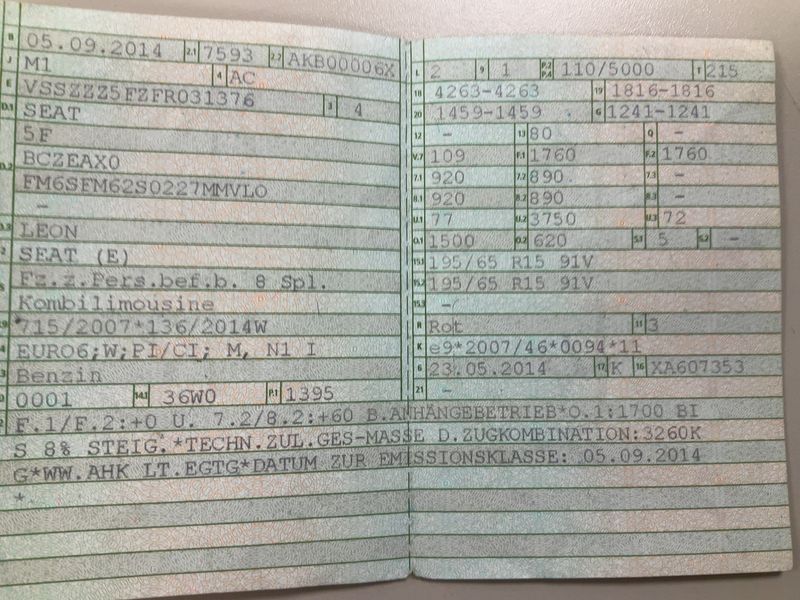 B 05.09.2014 2.1 7593 2.2 AKB00006X
J M1 4 AC
E VSSZZZ5FZFR031376 3 4
D.1 SEAT
5F
D.2 BCZEAX0
FM6SFM62S0227MMVLO
–
D.3 LEON
2 SEAT (E)
5 Fz.z.Pers.bef.b. 8 Spl.
Kombilimousine
V.9 715/2007*136/2014W
14 EURO6;W;PI/CI; M, N1 I
P.3 Benzin
10 0001 14.1 36W0 P.1 1395
L 2 9 1 P.2 P.4 110/5000 T 215
18 4263-4263 19 1816-1816
20 1459-1459 G 1241-1241
12 – 13 80 Q –
V.7 109 F.1 1760 F.2 1760
7.1 920 7.2 890 7.3 –
8.1 920 8.2 890 8.3 –
U.1 77 U.2 3750 U.3 72
O.1 1500 O.2 620 S.1 5 S.2 –
15.1 195/65 R15 91V
15.2 195/65 R15 91V
15.3 –
R Rot 11 3
K e9*2007/46*0094*11
6 23.05.2014 17 K 16 XA607353
21 –
F.1/F.2:+0 U. 7.2/8.2:+60 B.ANHÄNGEBETRIEB*O.1:1700 BI
S 8% STEIG.*TECHN.ZUL.GES-MASSE D.ZUGKOMBINATION:3260K
G*WW.AHK LT.EGTG*DATUM ZUR EMISSIONSKLASSE: 05.09.2014
*